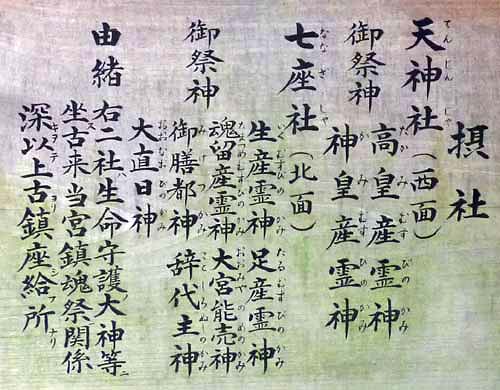 摂社
天神社(西面)
御祭神 高皇産霊神
神皇産霊神
七座社(北面)
御祭神 生産霊神 足産霊神
魂留産霊神 大宮能売神
御膳都神 辞代主神
大直日神
由緒 右二社ハ生命守護ノ大神等ニ
坐ス古来当宮鎮魂祭関係
深キヲ以テ上古ヨリ鎮座シ給フ所ナリ